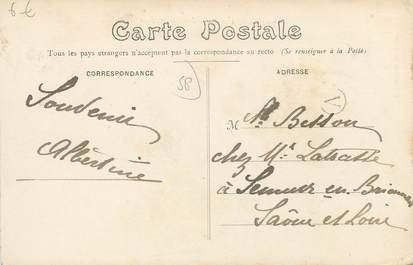 6 €
Carte Postale
Tous les pays etrangers n'acceptent pas la correspondance au recto (Se renseigner à la Poste)
CORRESPONDANCE
58
ADRESSE
V
Souvenir
Albertine
M Besson
chez Mr
à Semur en Brionnais
Saône et Loire